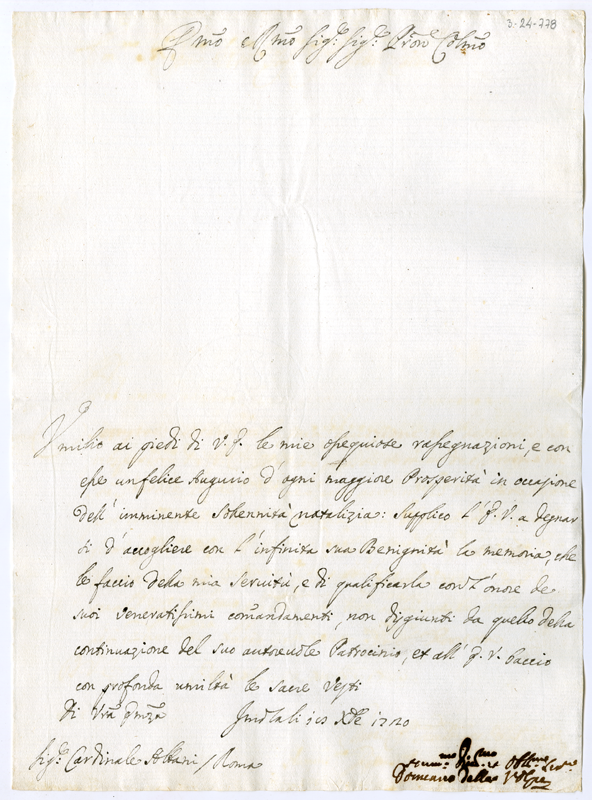 3-24-778
E.mo e R.mo Sig.r Sig.r Pron Colmo
Umilio ai piedi di V. E. le mie ossequiose rassegnazioni, e con
esse un felice Augurio d'ogni maggiore Prosperità in occasione
dell'imminente Solennità natalizia: supplico l'E. V. a degnar
si d'accogliere con l'infinita sua Benignità la memoria, che
le faccio della mia servitù, e di qualificarla con l'onore de
suoi veneratissimi comandamenti, non disgiunti da quello della
continuazione del suo autorevole Patrocinio, et all'E. V. baccio
con profonda umiltà le sacre Vesti
Di Vra Emza Xbre 1720
Sig.r Cardinale Albani / Roma
Domenico della Volpe